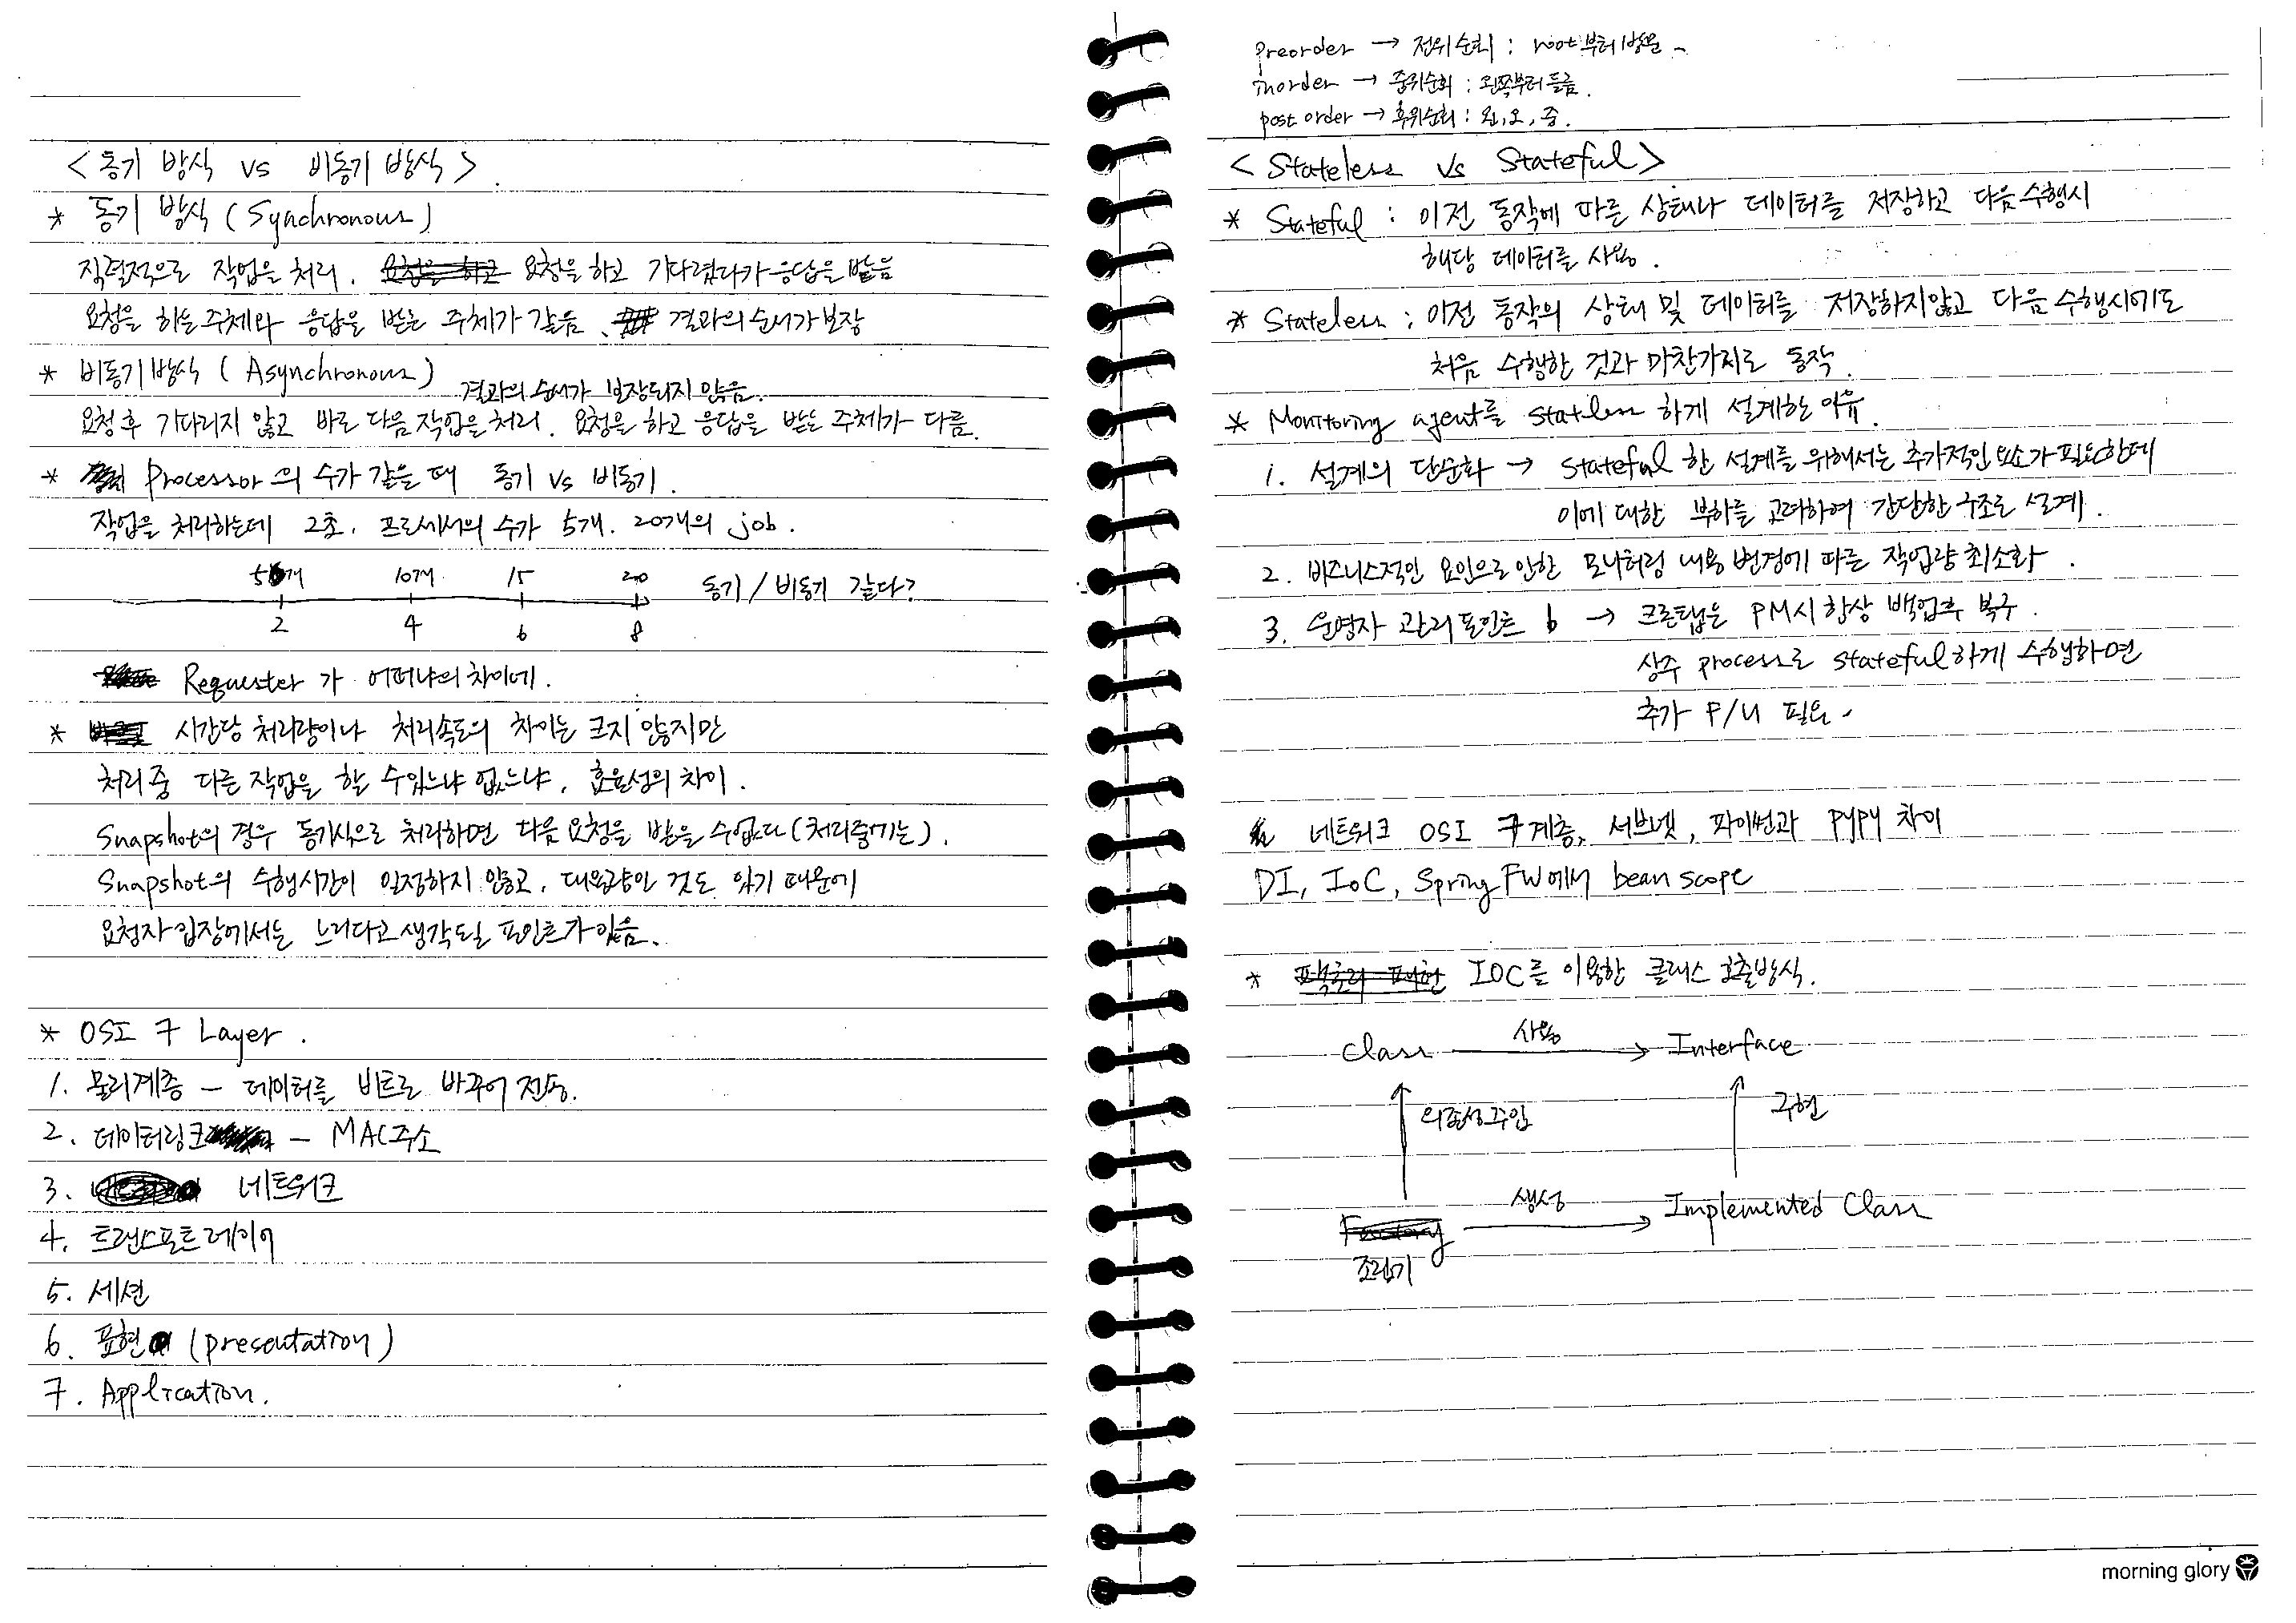 < 동기 방식 vs 비동기 방식 >
* 동기 방식 ( Synchronous )
직렬적으로 작업을 처리. 요청을 하고 요청을 하고 기다렸다가 응답을 받음
요청을 하는 주체와 응답을 받는 주체가 같음. 결과의 순서가 보장
* 비동기방식 ( Asynchronous ) 결과의 순서가 보장되지 않음.
요청 후 기다리지 않고 바로 다음 작업을 처리. 요청을 하고 응답을 받는 주체가 다름.
* Processor 의 수가 같을 때 동기 vs 비동기.
작업을 처리하는데 2초. 프로세서의 수가 5개. 20개의 job.
5개 10개 15 20
2 4 6 8
동기 / 비동기 같다?
Requester 가 어떠냐의 차이네.
* 시간당 처리량이나 처리속도의 차이는 크지 않지만
처리 중 다른 작업을 할 수 있느냐 없느냐. 효율성의 차이.
Snapshot의 경우 동기식으로 처리하면 다음 요청을 받을 수 없다 (처리중에는).
Snapshot의 수행시간이 일정하지 않고, 대용량인 것도 있기 때문에
요청자 입장에서는 느리다고 생각될 포인트가 있음.
* OSI 7 Layer .
1. 물리계층 - 데이터를 비트로 바꾸어 전송.
2. 데이터링크 - MAC주소
3. 네트워크
4. 트랜스포트 레이어
5. 세션
6. 표현 (presentation)
7. Application.
preorder → 전위순회 : root부터 방문.
inorder → 중위순회 : 왼쪽부터 들름.
post order → 후위순회 : 왼, 오, 중.
< Stateless vs Stateful >
* Stateful : 이전 동작에 따른 상태나 데이터를 저장하고 다음 수행시
해당 데이터를 사용.
* Stateless : 이전 동작의 상태 및 데이터를 저장하지 않고 다음 수행시에도
처음 수행한 것과 마찬가지로 동작.
* Monitoring agent를 statless 하게 설계한 이유.
1. 설계의 단순화 → stateful 한 설계를 위해서는 추가적인 요소가 필요한데
이에 대한 부하를 고려하여 간단한 구조로 설계.
2. 비즈니스적인 요인으로 인한 모니터링 내용 변경에 따른 작업량 최소화.
3. 운영자 관리 포인트 → 크론탭은 PM시 항상 백업후 복구.
상주 process로 stateful 하게 수행하면
추가 P/U 필요.
네트워크 OSI 7계층, 서브넷, 파이썬과 pypy 차이
DI, IoC, Spring FW에서 bean scope
* 팩토리 패턴 IOC를 이용한 클래스 호출방식.
사용
Class → Interface
의존성주입 구현
생성
Factory → Implemented Class
조립기
morning glory